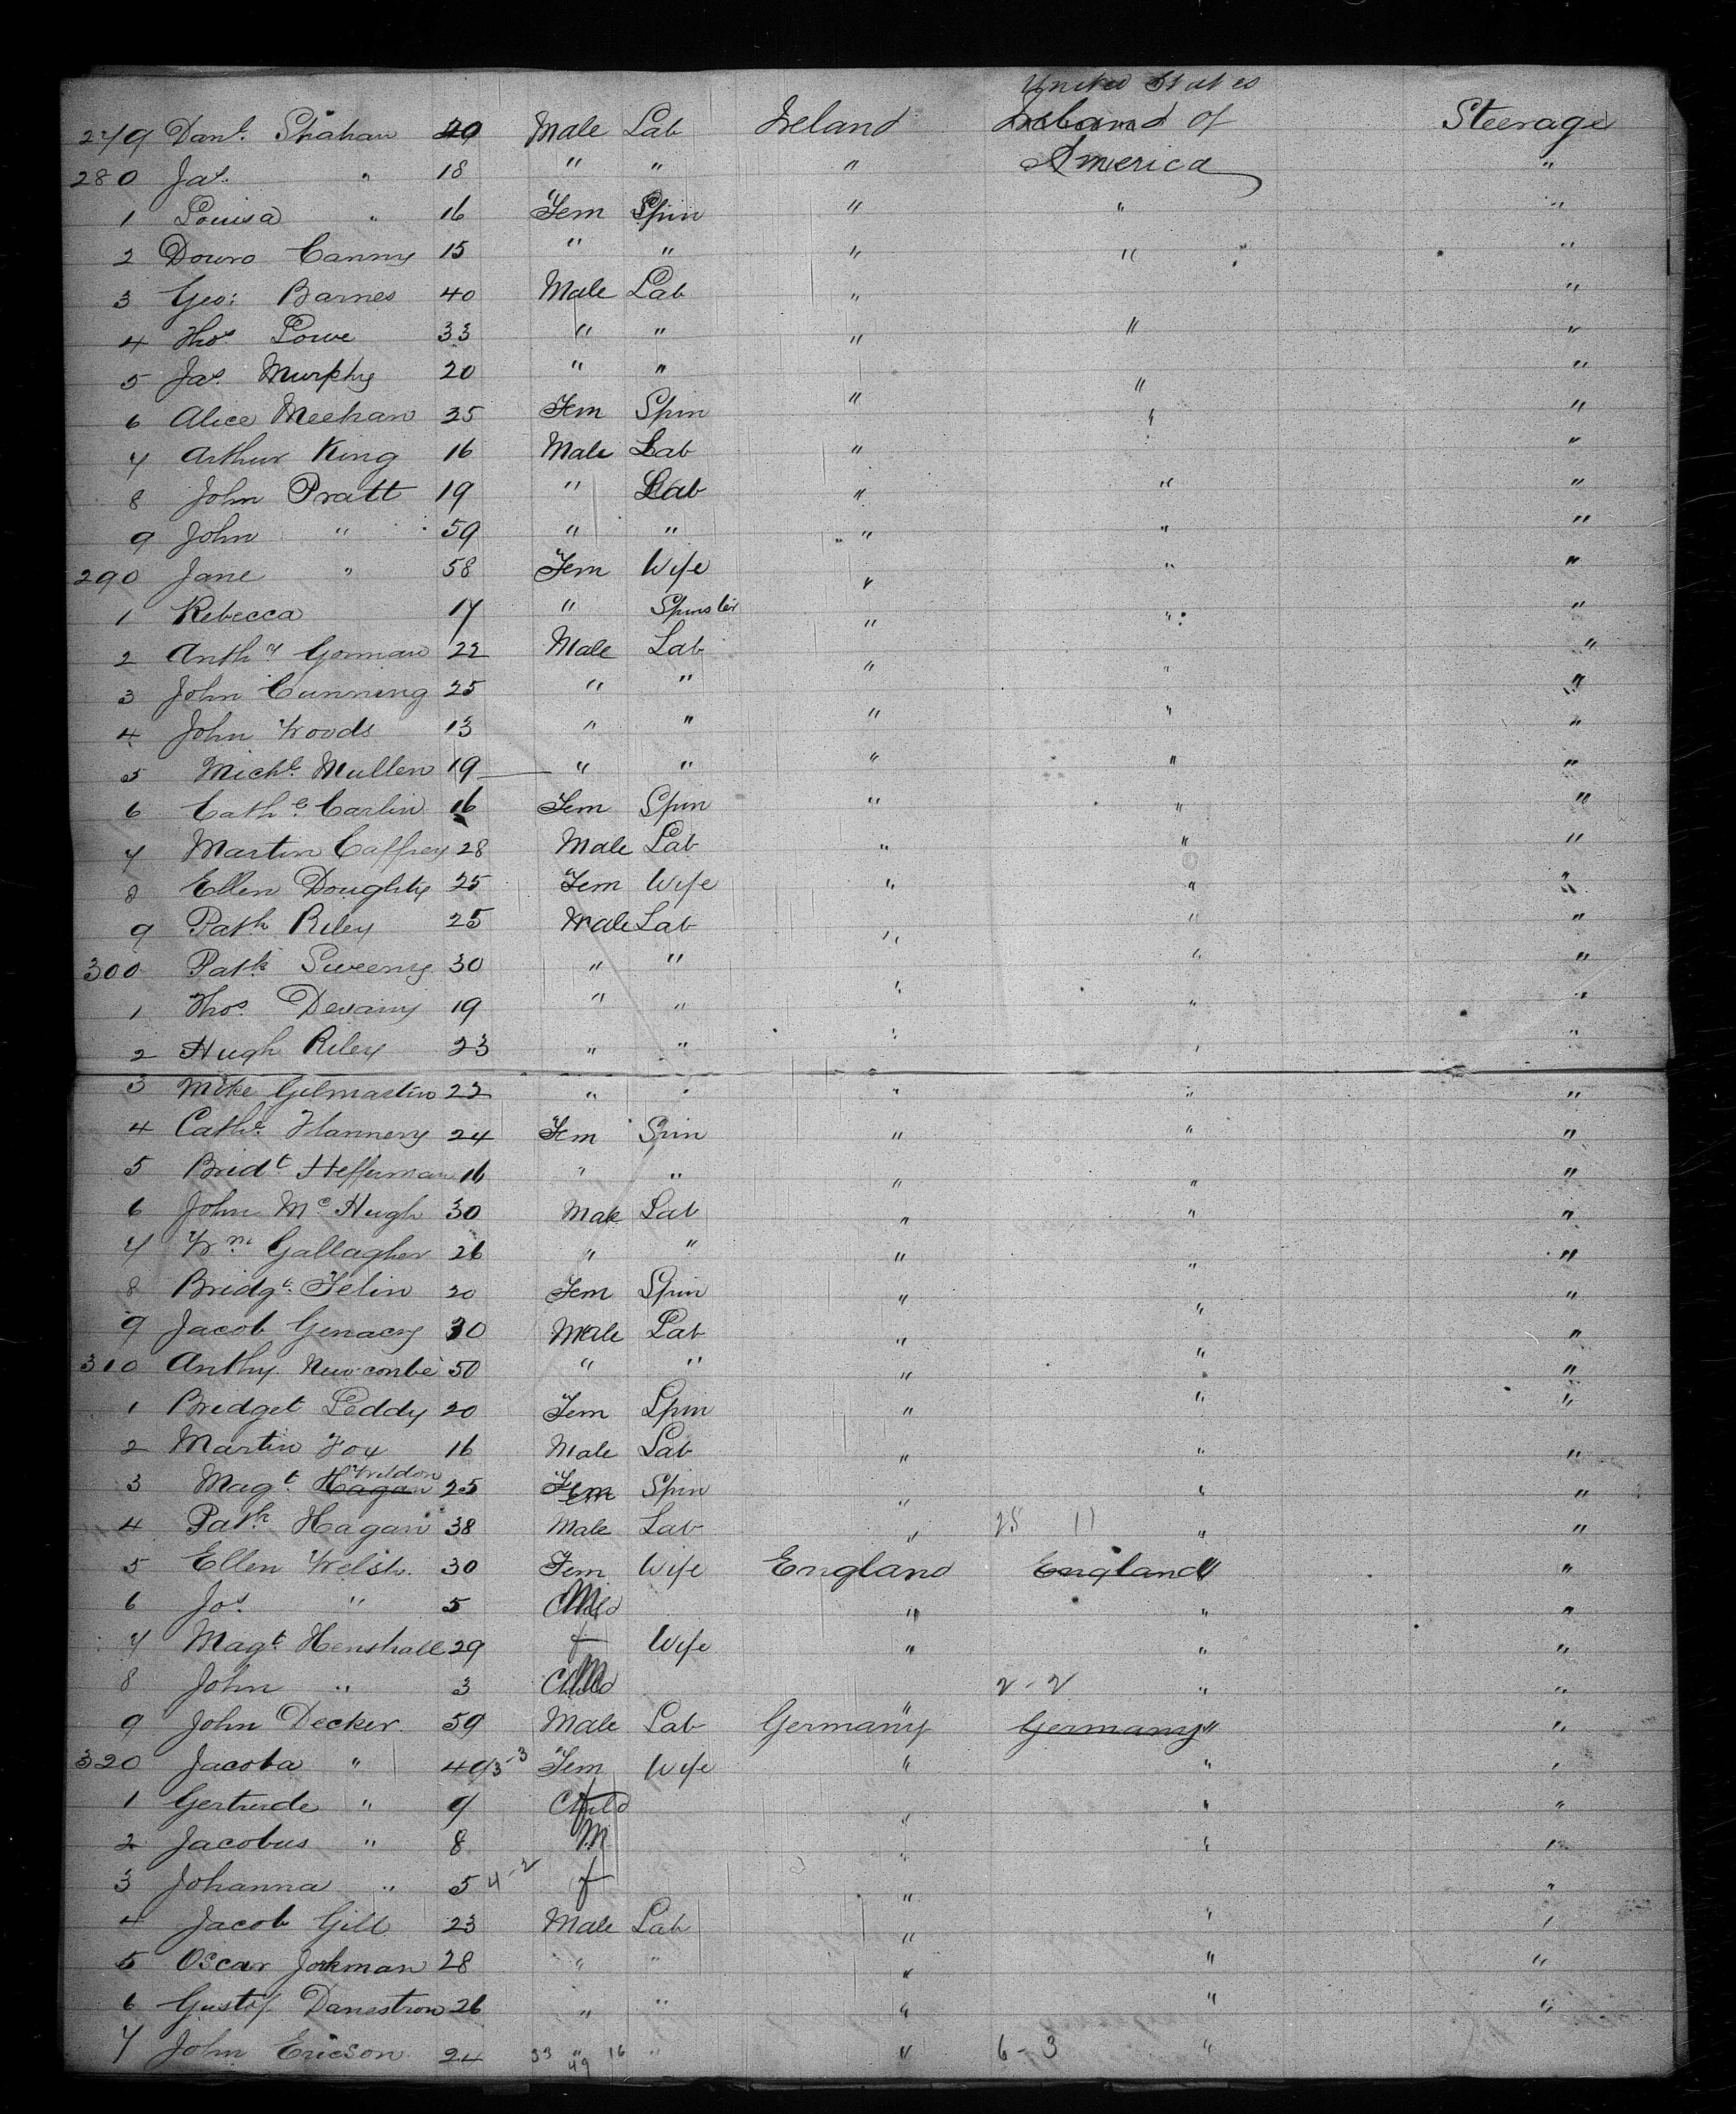 United States
279 Danl. Shahan 20 Male Lab Ireland Ireland of Steerage
280 Jas. " 18 " " " America "
1 Louisa " 16 Fem Spin " " "
2 Canny 15 " " " " "
3 Geo: Barnes 40 Male Lab " "
4 Thos Lowe 33 " " " " "
5 Jas. Murphy 20 " " " "
6 Alice Meehan 25 Fem Spin " " "
7 Arthur King 16 Male Lab " "
8 John Pratt 19 " Lab " " "
9 John " 59 " " " " "
290 Jane " 58 Fem Wife " " "
1 Rebecca 17 " Spinster " " "
2 Anthy Gorman 22 Male Lab " " "
3 John Cunning 25 " " "
4 John Woods 13 " " " " "
5 Michl. Mullen 19 " " " " "
6 Cathe. Carlin 16 Fem Spin " " "
7 Martin Caffrey 28 Male Lab " " "
8 Ellen Doughty 25 Fem Wife " " "
9 Patk Riley 25 Male Lab " " "
300 Patk Sweeny 30 " " " "
1 Thos Devany 19 " " " " "
2 Hugh Riley 23 " " " " "
3 Mike Gilmartin 22 " " " " "
4 Cathe. Flannery 24 Fem Spin " " "
5 Bridt Heffernan 16 " " " " "
6 John McHugh 30 Male Lab " " "
7 Wm Gallagher 26 " " " " "
8 Bridgt. Felin 20 Fem Spin " " "
9 Jacob 30 Male Lab " " "
310 Anthy. Newcombe 50 " " " " "
1 Bridget Leddy 20 Fem Spin " " "
2 Martin Fox 16 Male Lab " " "
3 Magt. Hagan Weldon 25 Fem Spin " " "
4 Patk Hagan 38 Male Lab " 25 11 " "
5 Ellen Welsh. 30 Fem Wife England England " "
6 Jos. " 5 Child M " " "
7 Magt. Henshall 29 f Wife " " "
8 John " 3 Child M 2-2 " "
9 John Decker 59 Male Lab Germany Germany " "
320 Jacoba " 49 3-3 Fem Wife " " "
1 Gertrude " 9 Child f " " "
2 Jacobus " 8 M " " "
3 Johanna " 5 4-2 f " "
4 Jacob Gill 23 Male Lab " " "
5 Oscar Jorkman 28 " " " " "
6 Gustof Danestrom 26 " " " " "
7 John Ericson 24 33 " 49 16 " " 6-3 "